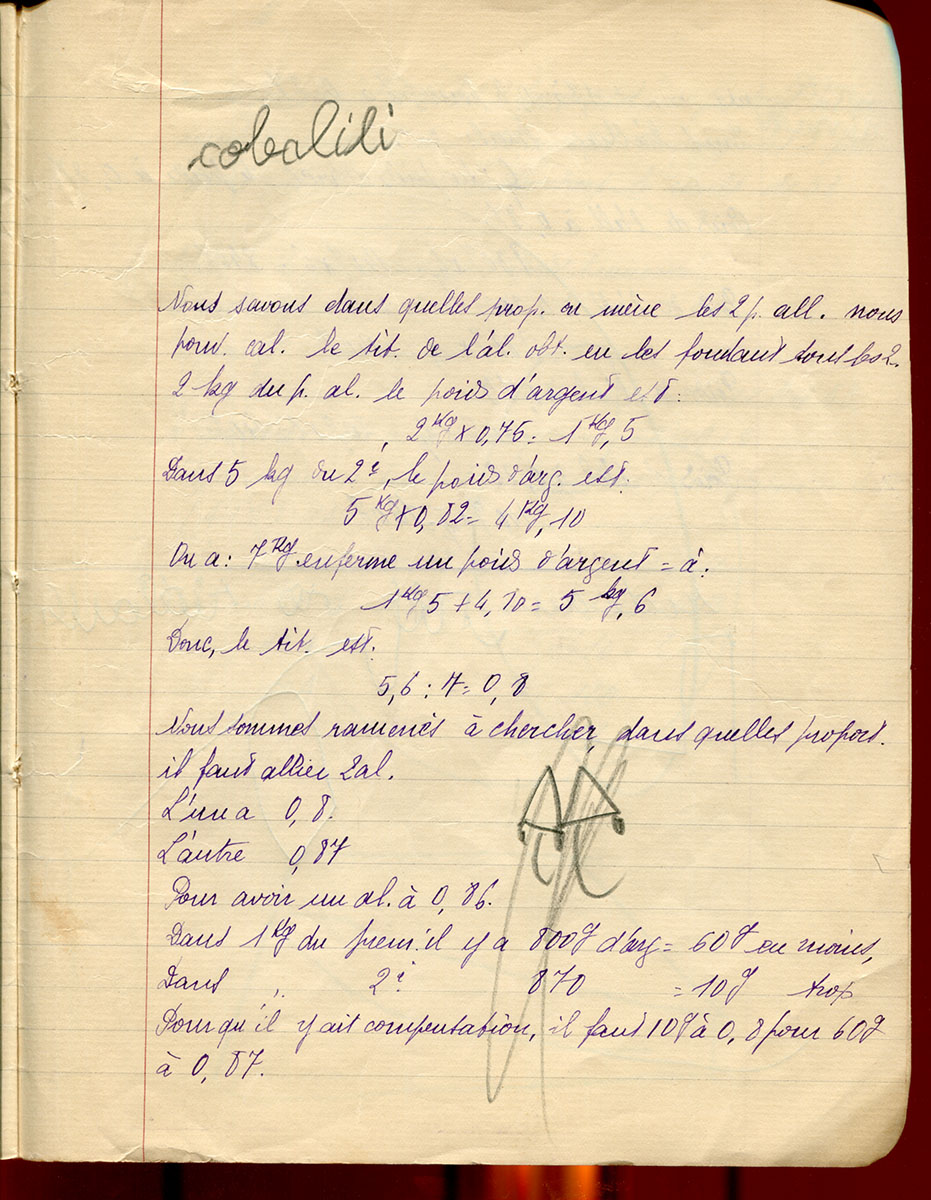 cobalili
Nous savons dans quelles prop. on mène les 2 p. all. nous
pouv. cal. le tit. de l'al. obt. en les fondant tous les 2.
2 kg du p. al. le poids d'argent est:
2 Kg x 0,75 = 1 Kg, 5
Dans 5 kg du 2è, le poids d'arg. est.
5 Kg x 0, 82 = 4 Kg, 10
On a: 7 Kg. enferme un poids d'argent = à:
1 Kg 5 + 4, 10 = 5 kg, 6
Donc, le tit. est.
5,6 : 7 = 0, 8
Nous sommes ramenés à chercher, dans quelles proport.
il faut allier 2al.
L'un a 0, 8.
L'autre 0, 87
Pour avoir un al. à 0, 86.
Dans 1 Kg du prem. il y a 800g d'arg = 60g en moins,
Dans " 2è 870 = 10g trop
Pour qu'il y ait compensation, il faut 10g à 0, 8 pour 60g
à 0, 87.